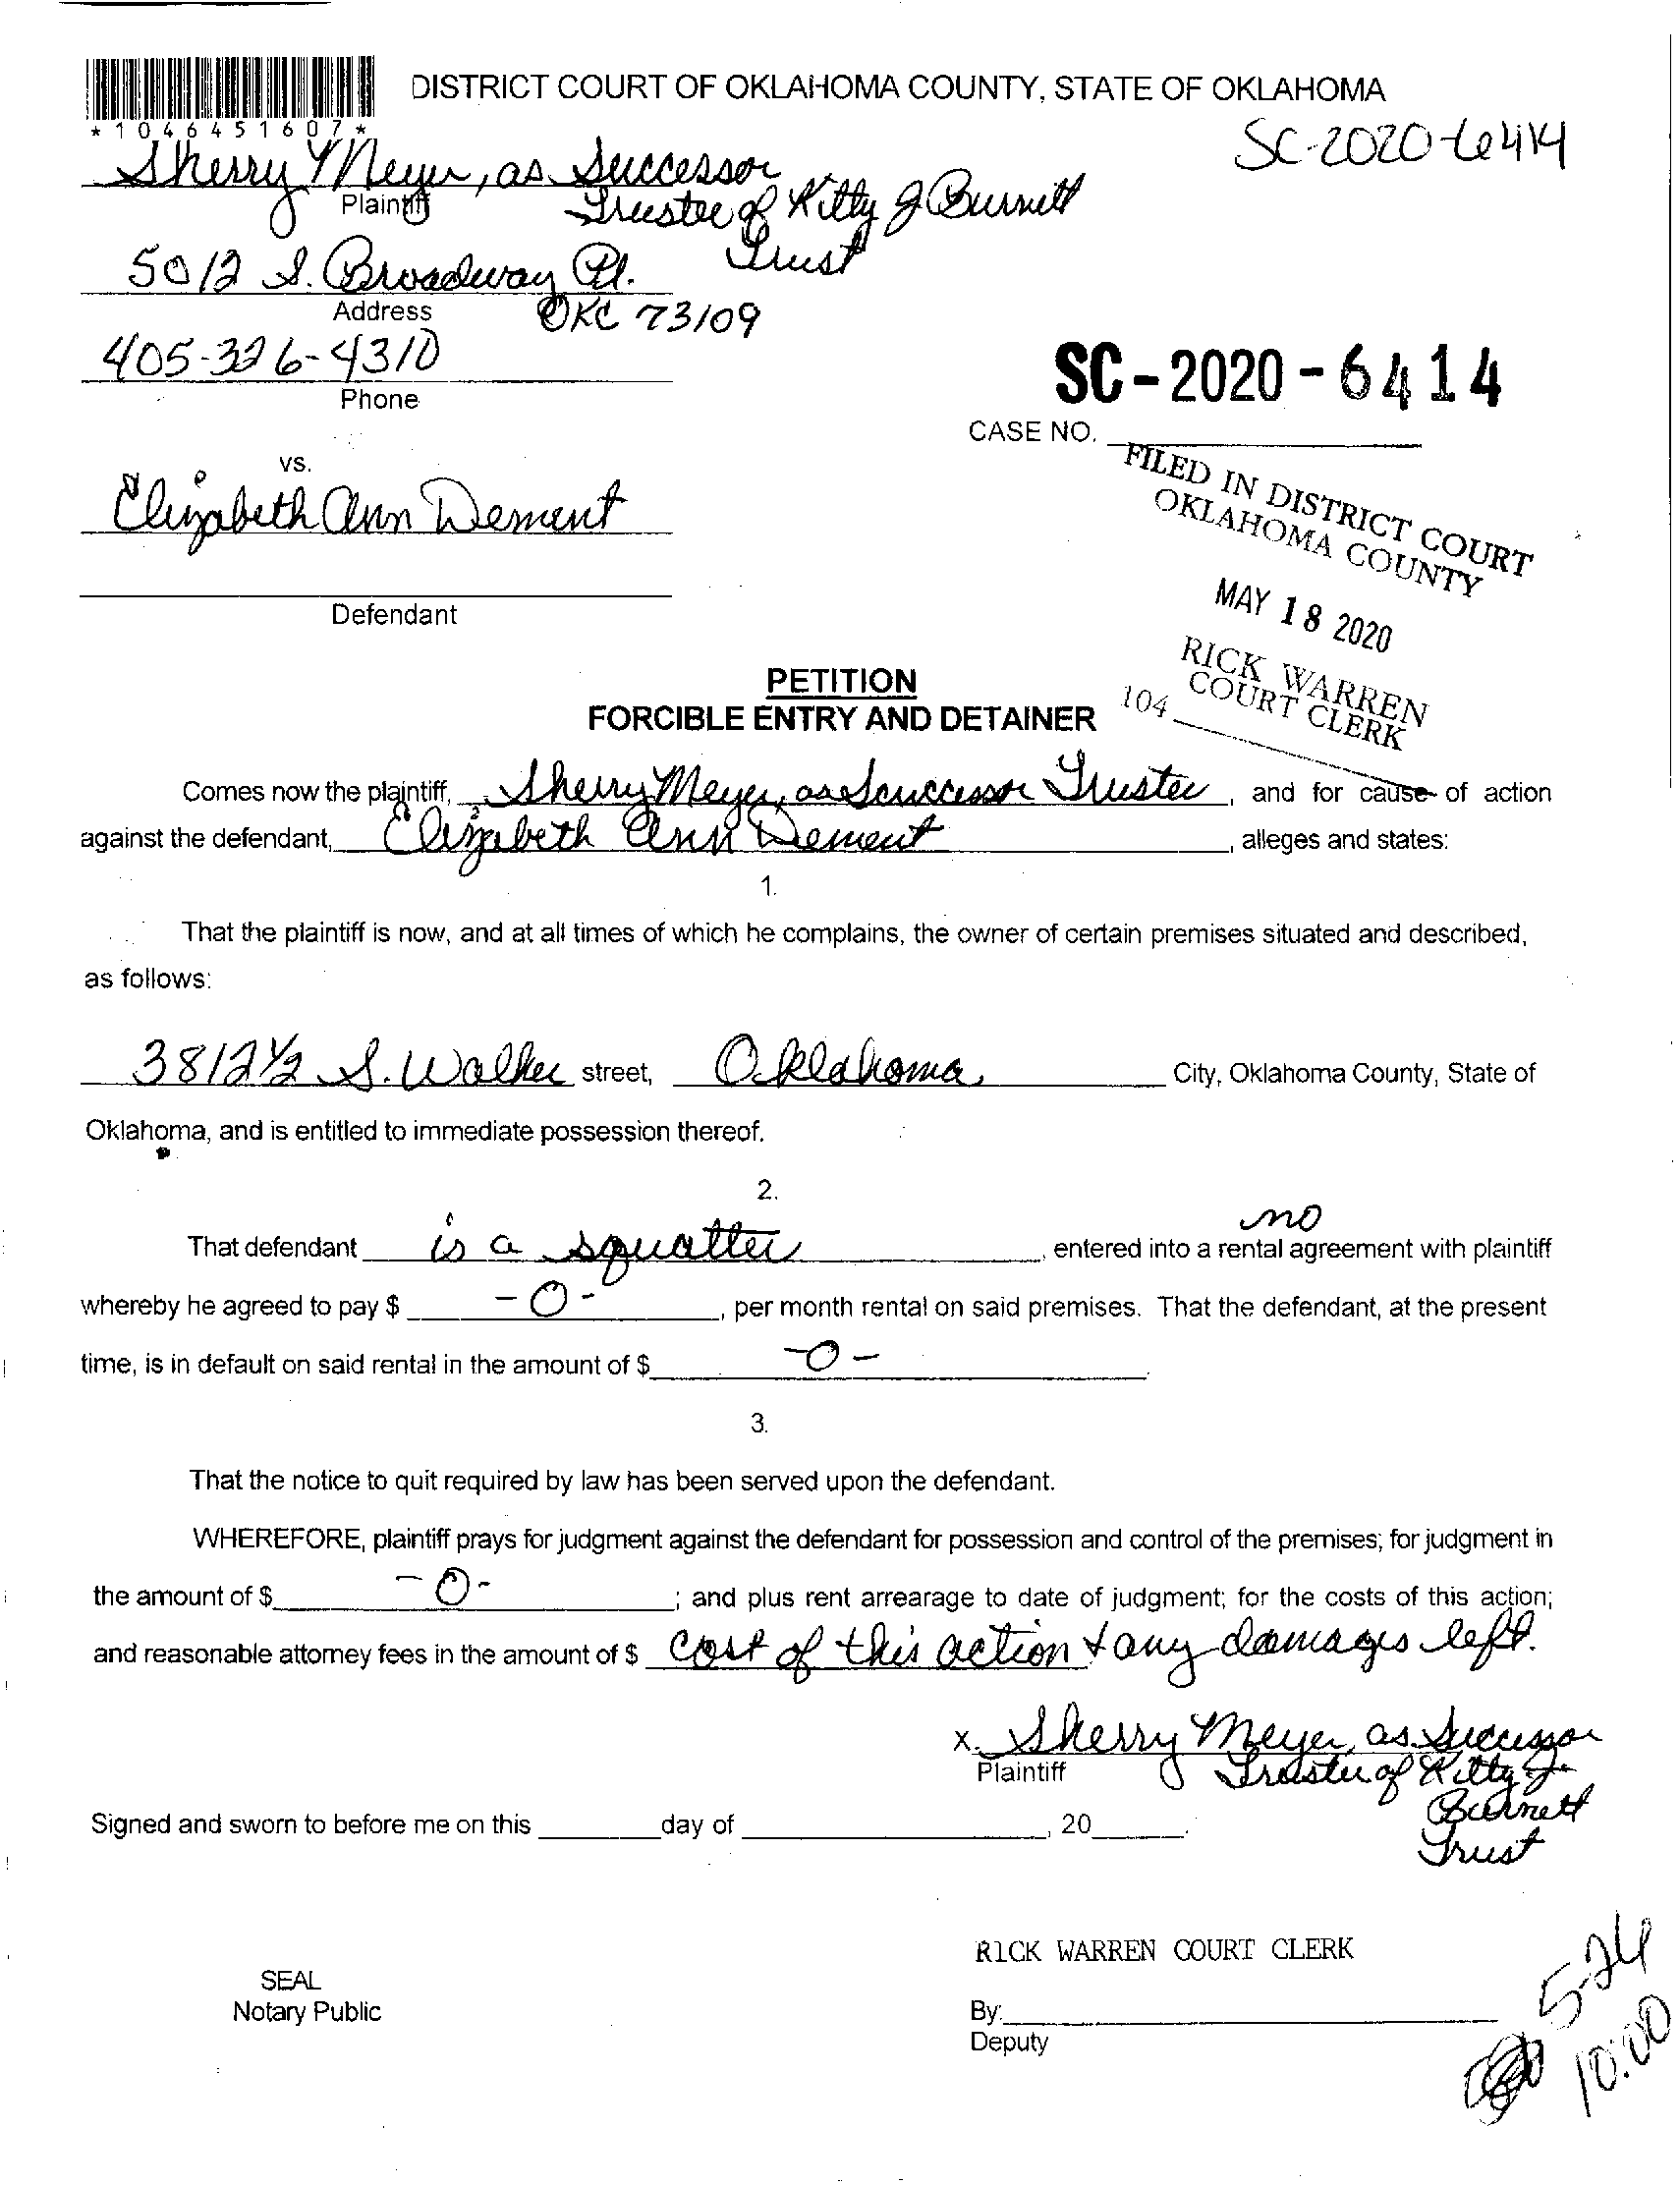 DISTRICT COURT OF OKLAHOMA COUNTY, STATE OF OKLAHOMA
*1046451607*
SC-2020-6414
Sherry Meyer, as Successor
Plaintiff
Trustee of Kitty J Burnett
Trust
5012 S. Broadway Pl.
Address
OKC 73109
405-326-4310
Phone
SC-2020-6414
CASE NO.
vs.
Elizabeth Ann Dement
Defendant
FILED IN DISTRICT COURT
OKLAHOMA COUNTY
MAY 18 2020
RICK WARREN
COURT CLERK
104
PETITION
FORCIBLE ENTRY AND DETAINER
Comes now the plaintiff, Sherry Meyer, as Successor Trustee, and for cause of action
against the defendant, Elizabeth Ann Dement, alleges and states:
1.
That the plaintiff is now, and at all times of which he complains, the owner of certain premises situated and described,
as follows:
3812½ S. Walker street, Oklahoma, City, Oklahoma County, State of
Oklahoma, and is entitled to immediate possession thereof.
2.
no
That defendant is a squatter, entered into a rental agreement with plaintiff
whereby he agreed to pay $ -0-, per month rental on said premises. That the defendant, at the present
time, is in default on said rental in the amount of $ -0-.
3.
That the notice to quit required by law has been served upon the defendant.
WHEREFORE, plaintiff prays for judgment against the defendant for possession and control of the premises; for judgment in
the amount of $ -0-; and plus rent arrearage to date of judgment; for the costs of this action;
and reasonable attorney fees in the amount of $ Cost of this action + any damages left.
x. Sherry Meyer, as Successor
Plaintiff
Trustee of Kitty J.
Burnett
Trust
Signed and sworn to before me on this day of , 20 .
RICK WARREN COURT CLERK
SEAL
Notary Public
By:
Deputy
5-26
10:00